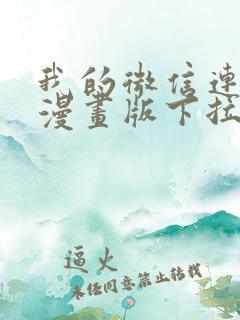 我的微信连
漫畫版下拉
逼火
未经同意禁止转载